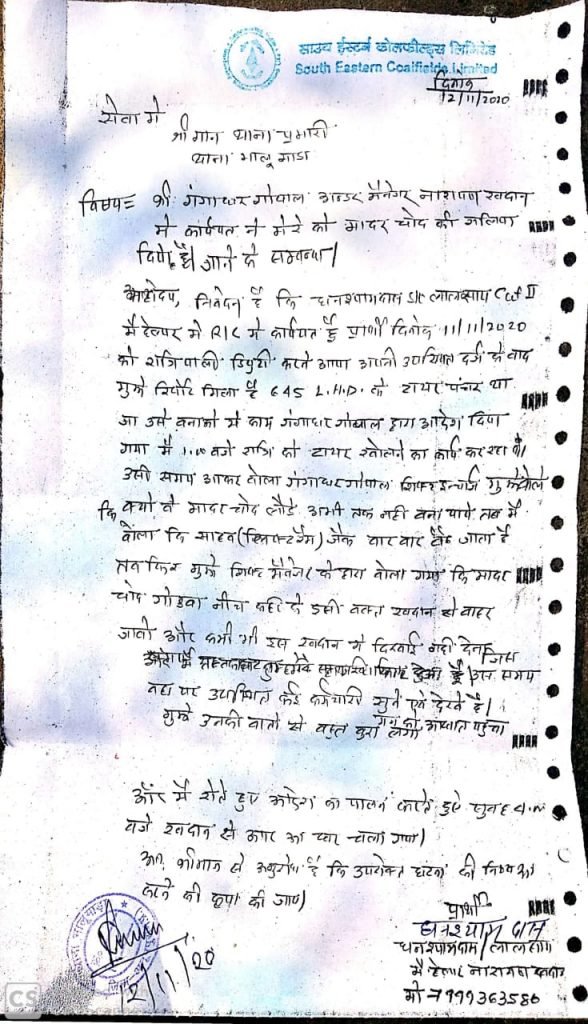 साउथ ईस्टर्न कोलफील्ड्स लिमिटेड
South Eastern Coalfields Limited
दिनांक
12/11/2020
सेवा मे
श्री मान थाना प्रभारी
थाना भालू माडा
विषय= श्री गंगाधर गोपाल अन्डर मैनेजर नारायण खदान
मे कार्यरत ने मेरे को मादर चोद की गलिया
दिये है। जाने के सम्बन्ध।
महोदय, निवेदन है कि घनश्यामदास S/c लालसाय Cat II
मै हेल्पर मे R/C मे कार्यरत हूँ प्रार्थी दिनांक 11/11/2020
को रात्रिपाली डियुटी करने आया अपनी उपस्थित दर्ज के बाद
मुझे रिपोर्ट मिला है 645 L.H.D. के टायर पंचर था
जा उसे बनाने से काम गंगाधर गोपाल द्वारा आदेश दिया
गया मै 1.00 बजे रात्रि को टायर खोलने का कार्य कर रहा था।
उसी समय आकर बोला गंगाधर गोपाल शिफ्ट इन्चार्ज मुझे बोले
कि क्यो बे मादर चोद लौडे अभी तक नही बना पाये तब मै
बोला कि साहब जैक बार बार बैठ जाता है
तब फिर मुझे शिफ्ट मैनेजर के द्वारा बोला गया कि मादर
चोद गोडवा नीच कही के इसी वक्त खदान से बाहर
जावो और कभी भी इस खदान मे दिखाई नही देना जिस
उस समय
वहा पर उपस्थित कई कर्मचारी सुने एवं देखे है।
मुझे उनकी बातो से बहुत बुरा लगा मन को आघात पहुचा
और मै रोते हुए आदेश का पालन करते हुऐ सुबह 4.00
बजे खदान से ऊपर आ घर चला गया।
अतः श्रीमान से अनुरोध है कि उपरोक्त घटना की निष्पक्ष
करने की कृपा की जाय।
प्रार्थी
घनश्याम दास
घनश्यामदास / लालसाय
मै हेल्पर नारायण खदान
मो-7999363586
12/11/20
CS